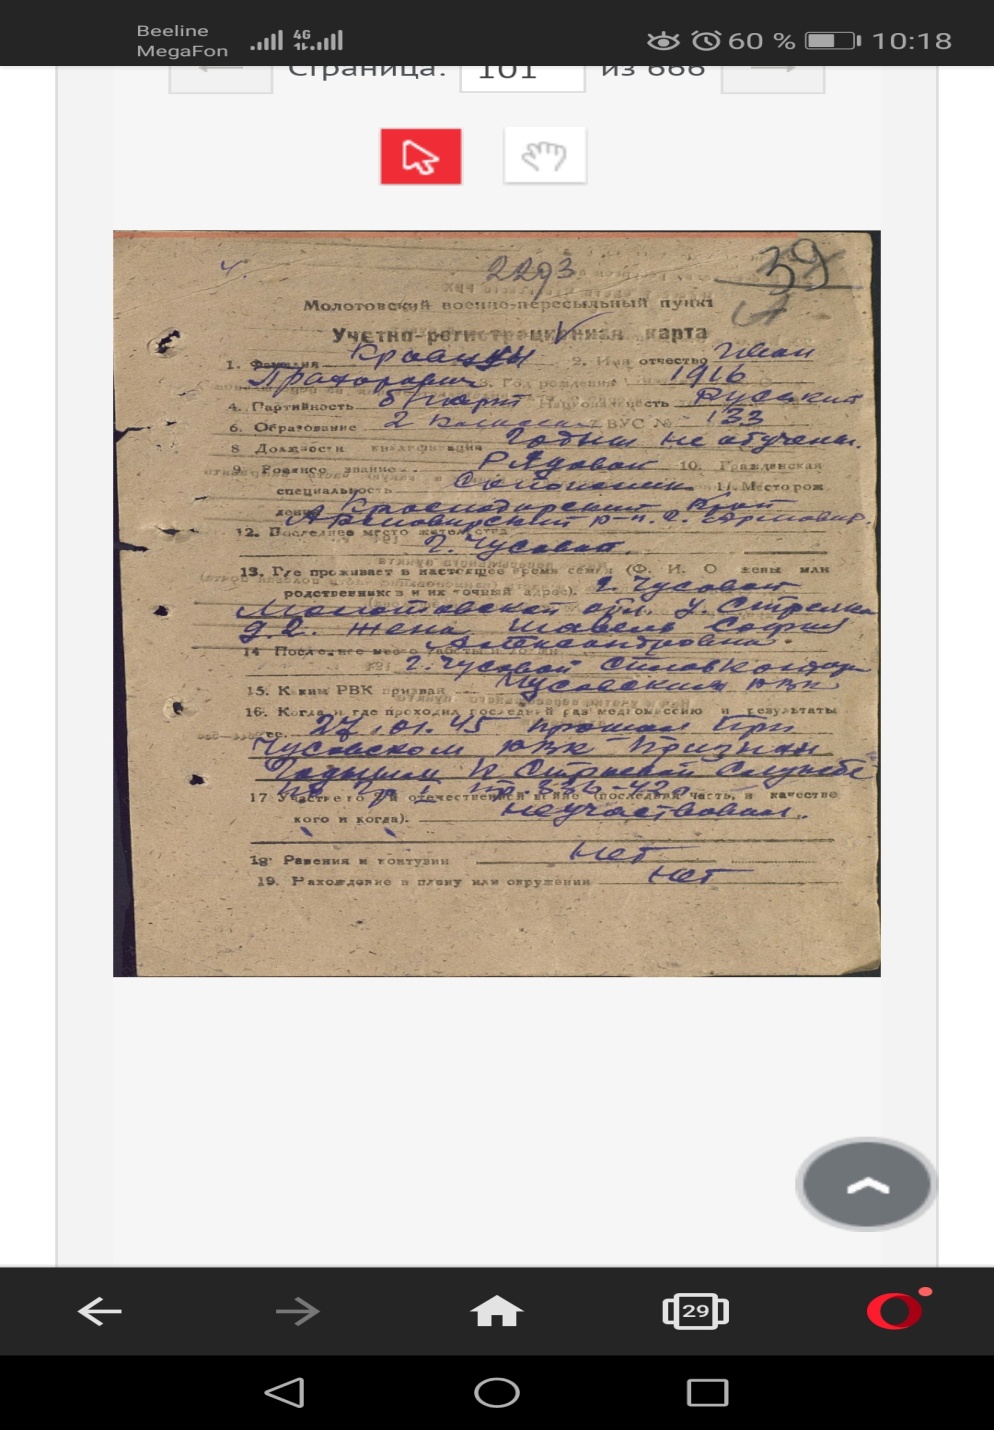 Beeline
MegaFon
4G
60 %
10:18
Страница: 101 из 666
4.
2293
39
Молотовский военно-пересыльный пункт
Учетно-регистрационная карта
1. Фамилия 2. Имя отчество Иван
3. Год рождения 1916
4. Партийность б/парт Национальность Русский
6. Образование 2 класса ВУС № 133
Годен не обучен.
8 Должности квалификация
9. Военное звание Рядовой 10. Гражданская
специальность 11. Место рож
дения Краснодарский Край
Армавирский р-н. г. Армавир.
12. Последнее место жительства
г. Чусовой.
13. Где проживает в настоящее время семья (Ф. И. О жены или
родственников и их точный адрес). г. Чусовой
Молотовская обл. у. Стрелка
д. 2. жена Шавель София
Александровна
14 Последнее место работы и
г. Чусовой
15. Каким РВК призван Чусовским РВК
16. Когда и где проходил последний раз медкомиссию и результаты
ее. 27.01.45 прошол При
Чусовском РВК Признан
Годным К Строевой Службе
17 Участие в отечественной войне (последняя часть, в качестве
кого и когда). не участвовал.
18 Ранения и контузии Нет
19. Нахождение в плену или окружении Нет
29